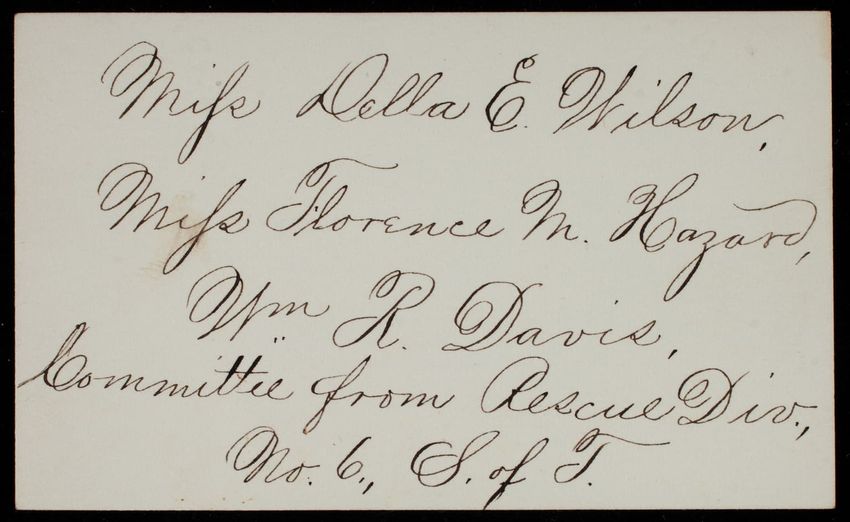 Miss Della E. Wilson,
Miss Florence M. Hazard,
Wm R. Davis,
Committee from Rescue Div.,
No. 6., S. of T.